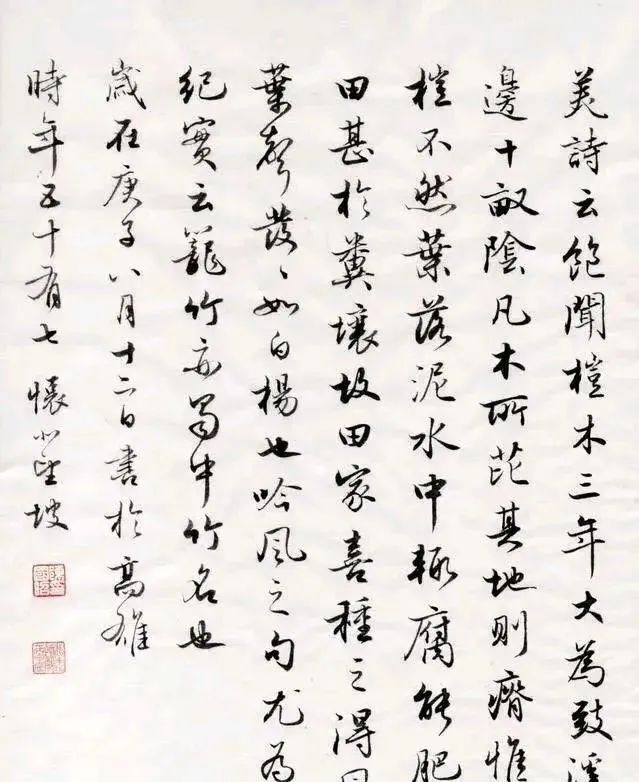 美詩云飽聞榿木三年大為致溪
邊十畝陰凡木所芘其地則瘠惟
榿不然葉落泥水中輒腐能肥
田甚於糞壤故田家喜種之得
葉聲發〻如白楊也吟風之句尤為
紀實云籠竹亦蜀中竹名也
歲在庚子八月十二日書於高雄
時年五十有七 懷望坡